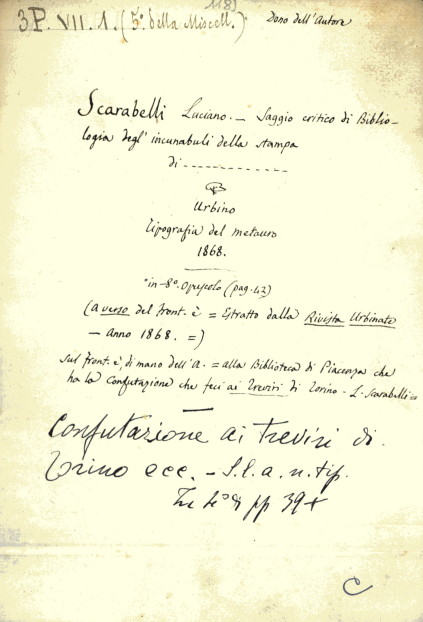 118)
3.P. VII. 1. (5.° della Miscell.) Dono dell'Autore
Scarabelli Luciano. — Saggio critico di Biblio-
logia degl' incunabuli della stampa
di - - - - - - - - - - - -
Urbino
Tipografia del metauro
1868.
in-8.° opuscolo (pag. 42)
(a verso del front. è = Estratto dalla Rivista Urbinate
— anno 1868. =)
Sul front. è, di mano dell'A. = alla Biblioteca di Piacenza che
ha la Confutazione che feci ai Treviri di Torino - L. Scarabelli =
Confutazione ai treviri di
Torino ecc. - S. l. a. n. tip.
In 4° di pp 39 +
C